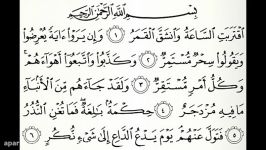 بِسْمِ اللَّهِ الرَّحْمَٰنِ الرَّحِيمِ
اقْتَرَبَتِ السَّاعَةُ وَانشَقَّ الْقَمَرُ ۝١ وَإِن يَرَوْا آيَةً يُعْرِضُوا
وَيَقُولُوا سِحْرٌ مُّسْتَمِرٌّ ۝٢ وَكَذَّبُوا وَاتَّبَعُوا أَهْوَاءَهُمْ ۚ
وَكُلُّ أَمْرٍ مُّسْتَقِرٌّ ۝٣ وَلَقَدْ جَاءَهُم مِّنَ الْأَنبَاءِ
مَا فِيهِ مُزْدَجَرٌ ۝٤ حِكْمَةٌ بَالِغَةٌ ۖ فَمَا تُغْنِ النُّذُرُ
۝٥ فَتَوَلَّ عَنْهُمْ ۘ يَوْمَ يَدْعُ الدَّاعِ إِلَىٰ شَيْءٍ نُّكُرٍ ۝٦
apar